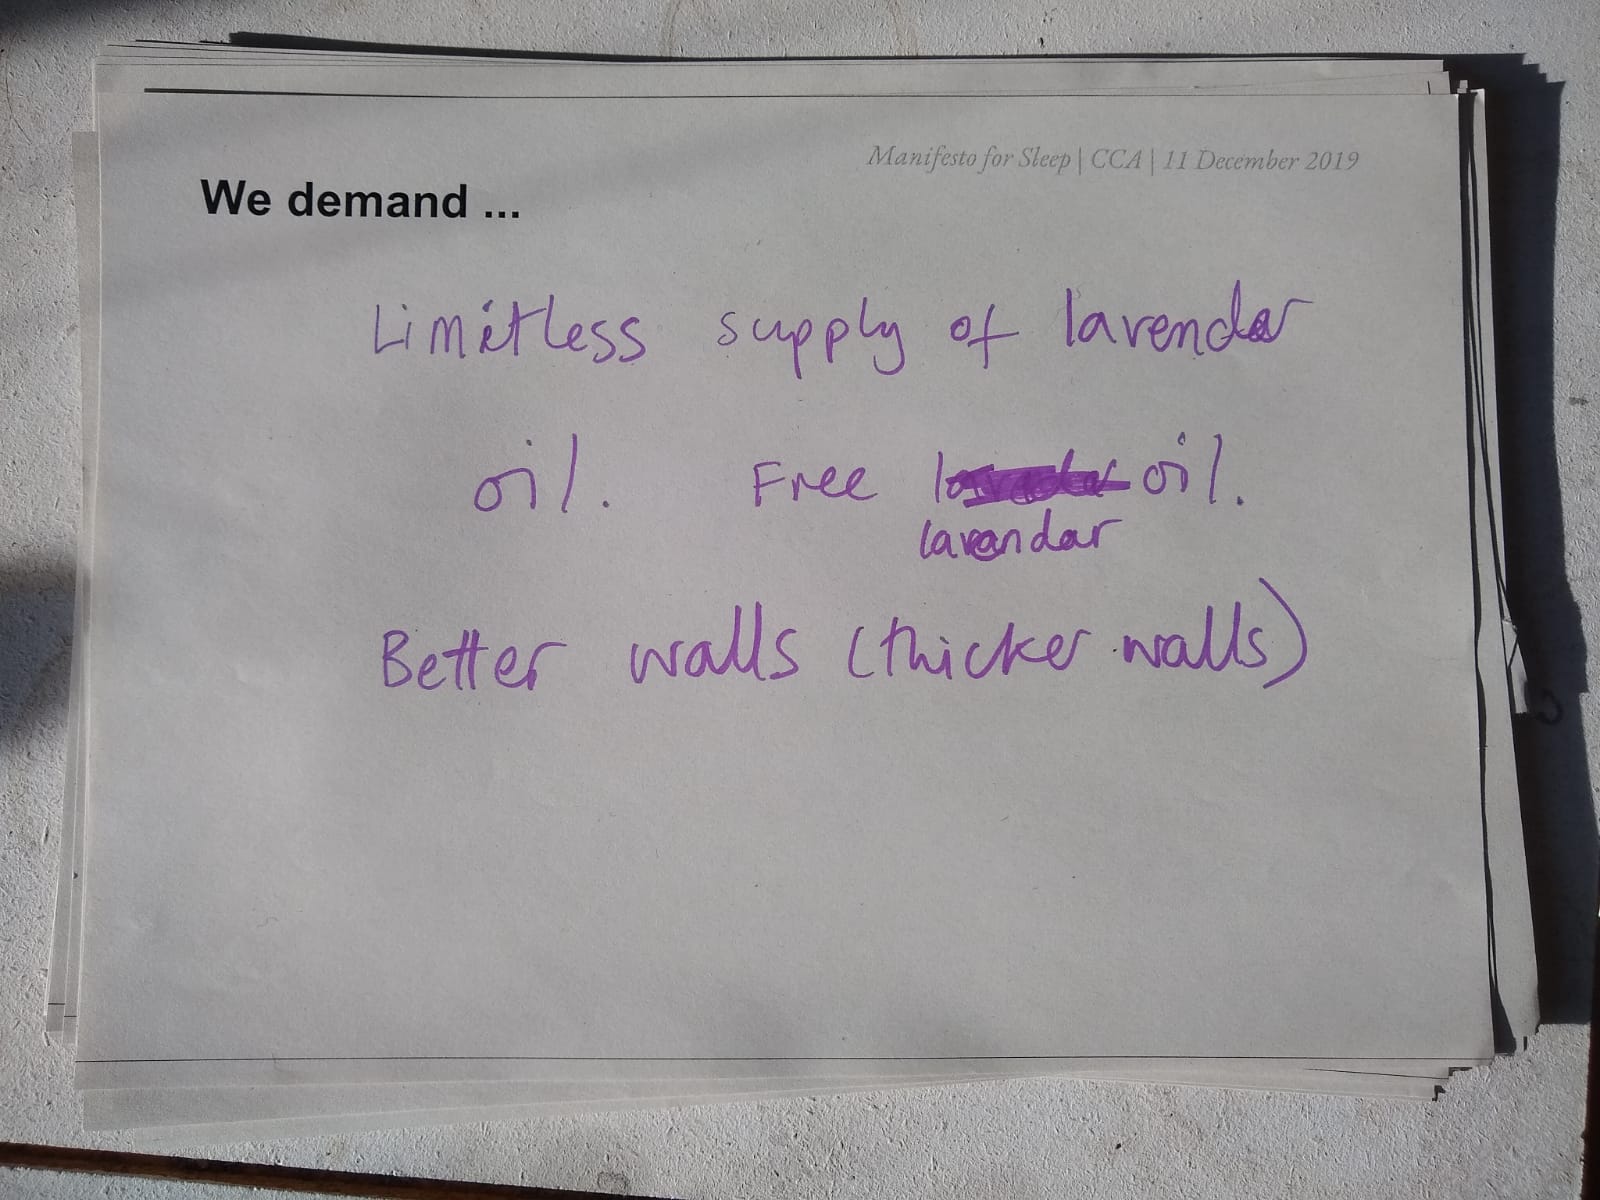 Manifesto for Sleep | CCA | 11 December 2019
We demand ...
Limitless supply of lavender
oil. Free oil.
lavendar
Better walls (thicker walls)